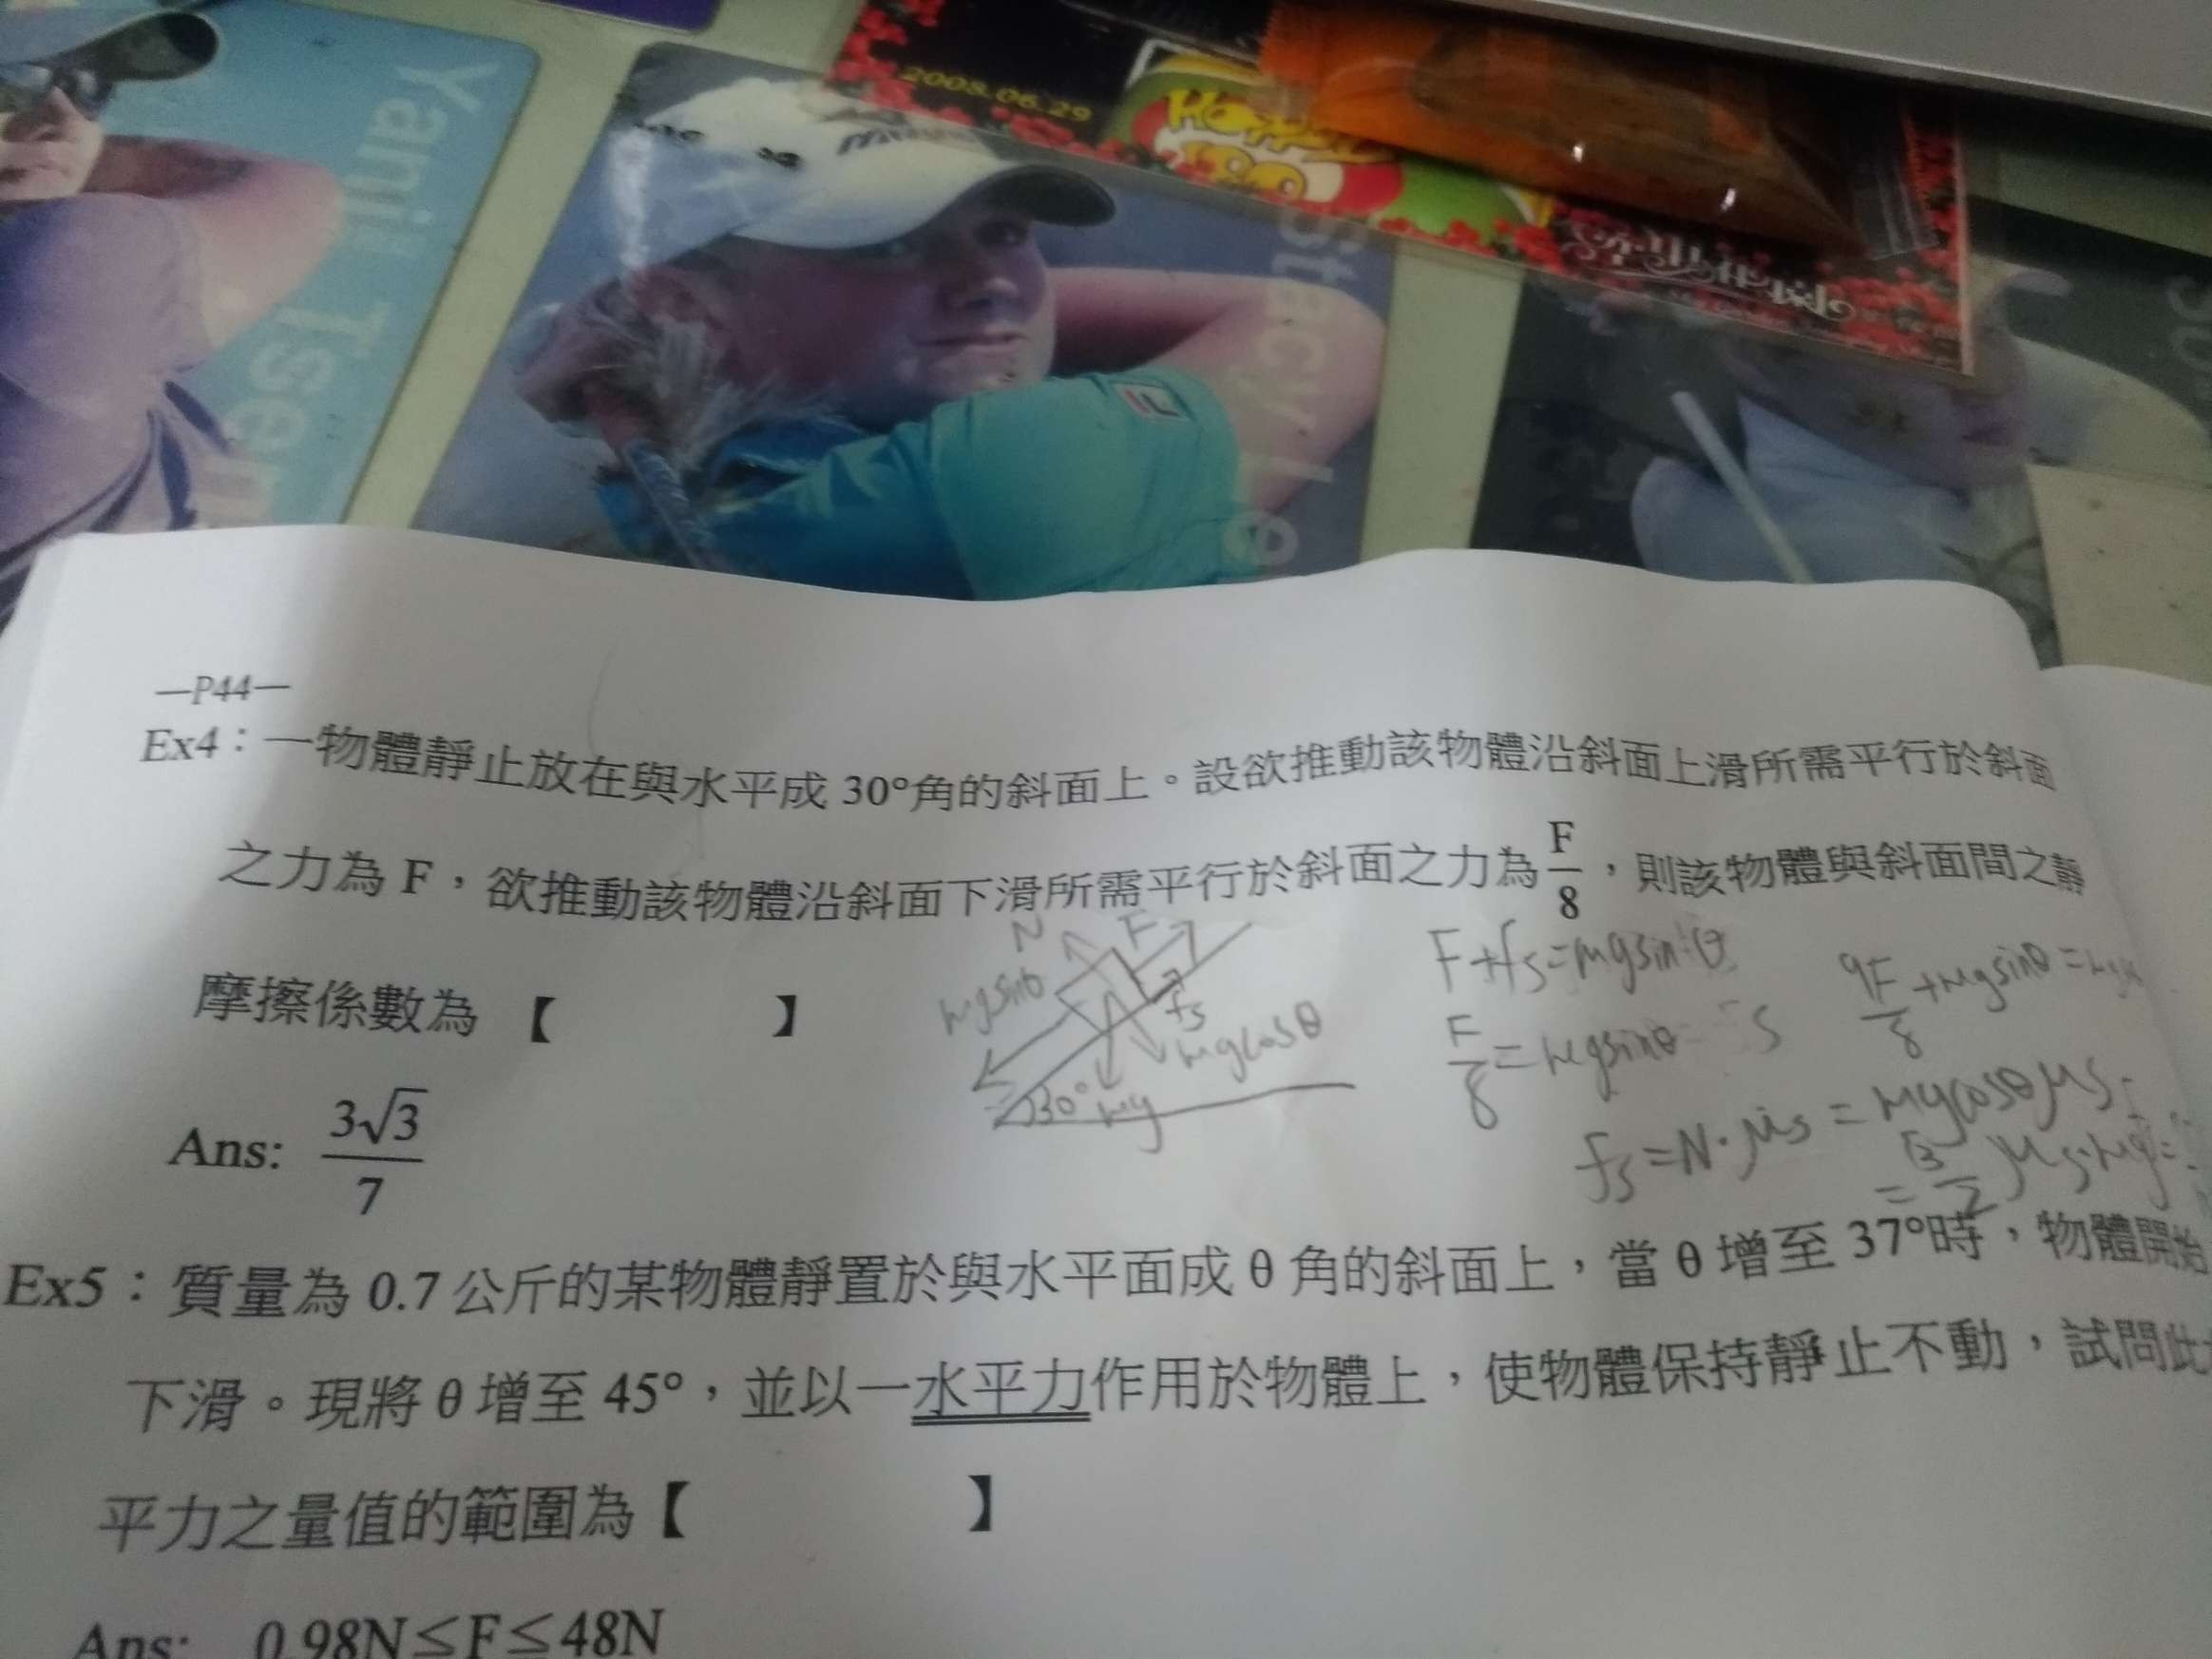 Yani Tsen
2008.06.29
Stacy Le
—P44—
Ex4：一物體靜止放在與水平成 30°角的斜面上。設欲推動該物體沿斜面上滑所需平行於斜面
之力為 F，欲推動該物體沿斜面下滑所需平行於斜面之力為 F/8，則該物體與斜面間之靜
摩擦係數為 【 】
N
F
mgsinθ
fs
mgcosθ
30°
mg
F+fs=mgsinθ
F/8=mgsinθ
9F/8+mgsinθ=
fs=N·μs=mgcosθμs
=√3/2 μs·mg=
Ans: 3√3/7
Ex5：質量為 0.7 公斤的某物體靜置於與水平面成 θ 角的斜面上，當 θ 增至 37°時，物體開始
下滑。現將 θ 增至 45°，並以一水平力作用於物體上，使物體保持靜止不動，試問此
平力之量值的範圍為【 】
Ans: 0.98N≤F≤48N